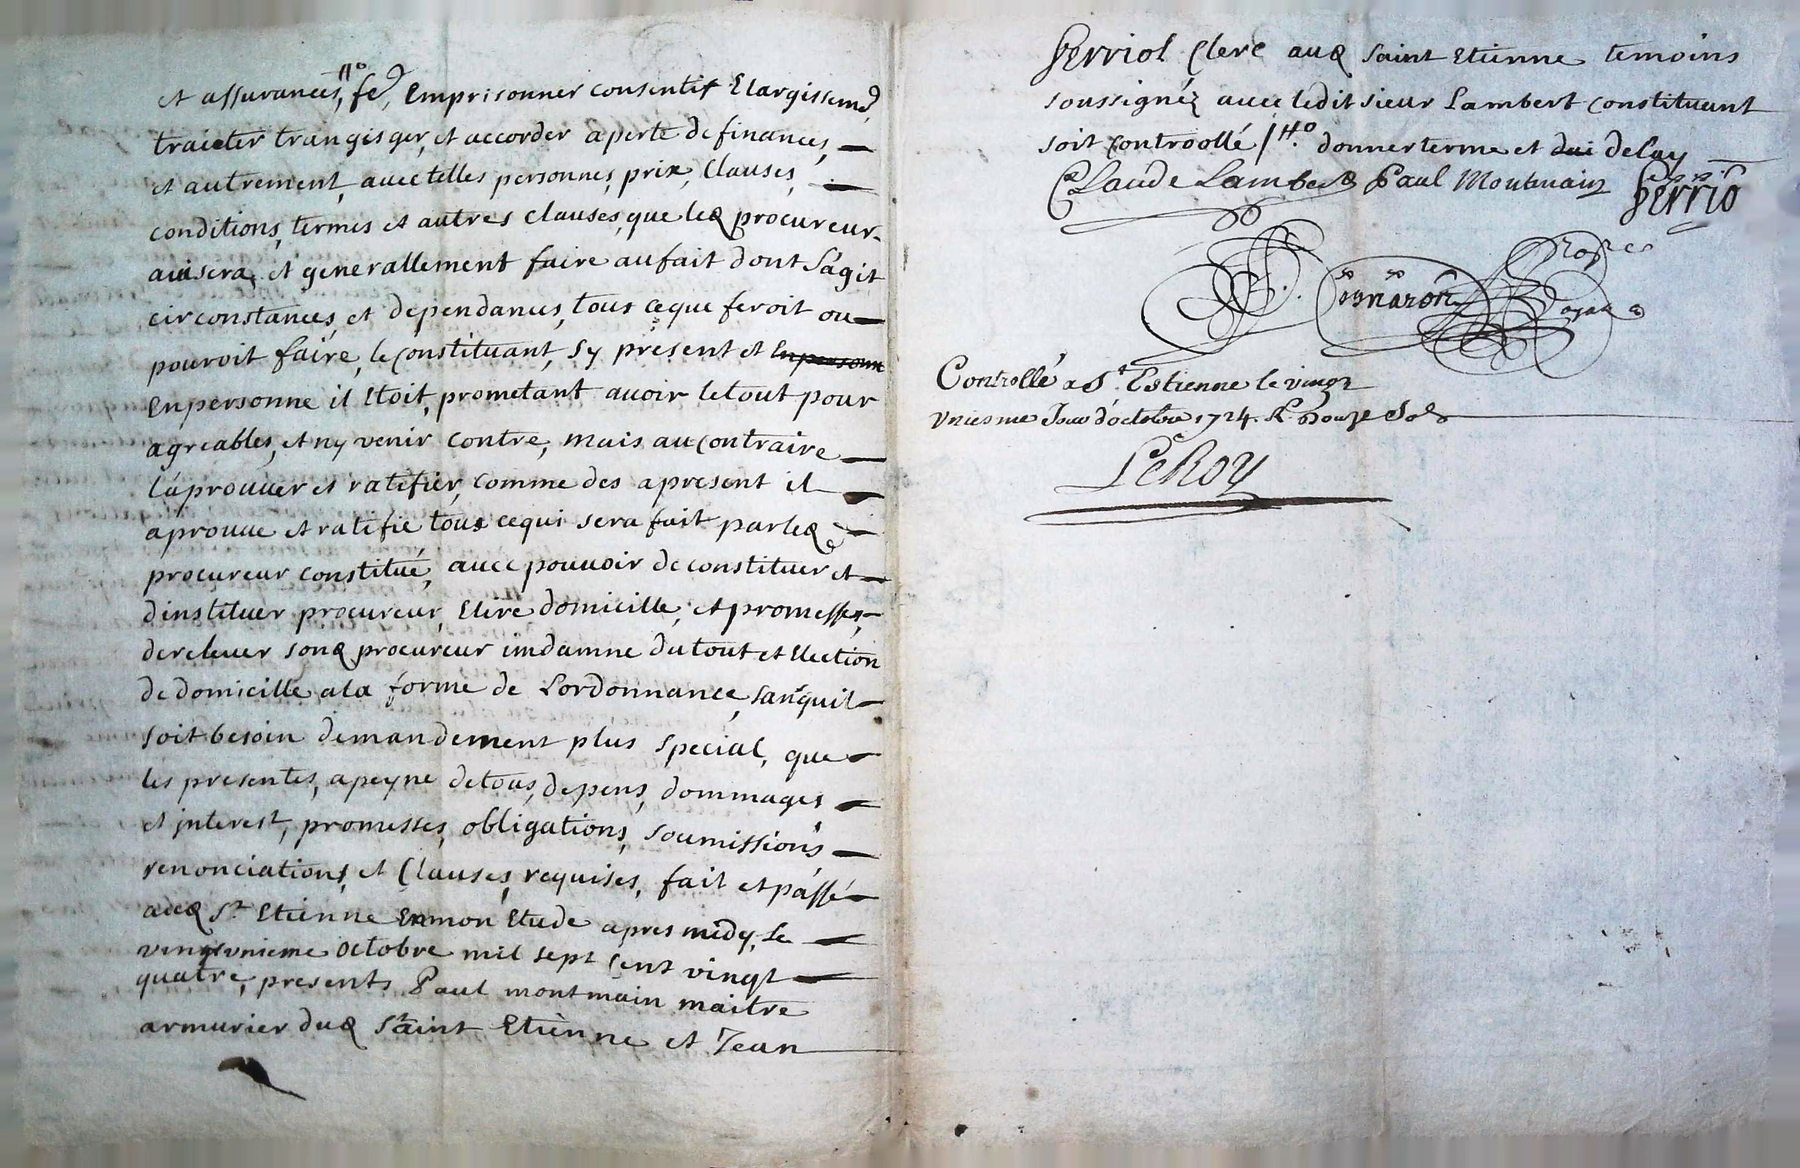 et assurances, fe, Emprisonner consentir Elargissem
traicter transiger, et accorder a perte de finances,
et autrement, avec telles personnes, prix, Clauses,
conditions, termes et autres clauses, que led procureur
auisera, et generallement faire au fait dont S'agit
circonstances, et dependances, tous ce que feroit ou
pouroit faire, le Constituant, sy présent et En personne
En personne il Etoit, prometant auoir le tout pour
agreables, et n'y venir contre, mais au Contraire
l'aprouuer et ratifier, comme des apresent il
aprouue et ratifie tous ce qui sera fait par led
procureur constitué, auec pouuoir de constituer et
d'instituer procureur, Elire domicille, et promesses,
de releuer sond procureur indamne du tout et Election
de domicille a la forme de L'ordonnance, sans quil
soit besoin de mandement plus special, que
les presentes, a peyne de tous, depens, dommages
et interest, promesses, obligations, soumissions
renonciations, et Clauses, requises, fait et passé
aud St Etienne En mon Etude apres midy, le
vingt vnieme octobre mil sept Cent vingt
quatre, presents Paul montmain maitre
armurier dud Saint Etienne et Jean
ferriol Clerc aud Saint Etienne temoins
soussignéz auec ledit sieur Lambert Constituant
soit Controollé / Ho donner terme et delay
Claude Lambert Paul Montmain ferrio
Controllé a St Estienne le vingt
vniesme Jour d'octobre 1724. R. Douze Sols
LeRoy